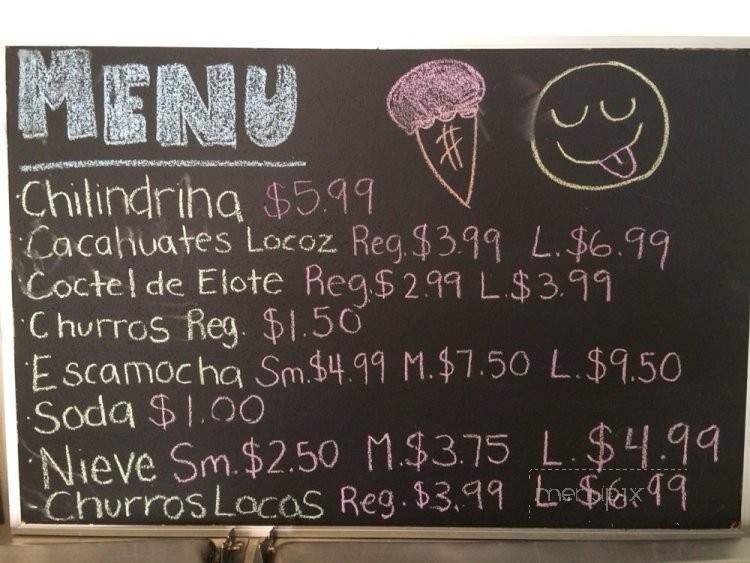 MENU
·Chilindrina $5.99
·Cacahuates Locoz Reg.$3.99 L.$6.99
·Coctel de Elote Reg.$2.99 L.$3.99
·Churros Reg. $1.50
·Escamocha Sm.$4.99 M.$7.50 L.$9.50
·Soda $1.00
·Nieve Sm.$2.50 M.$3.75 L.$4.99
·Churros Locos Reg.$3.99 L.$6.99
menupix